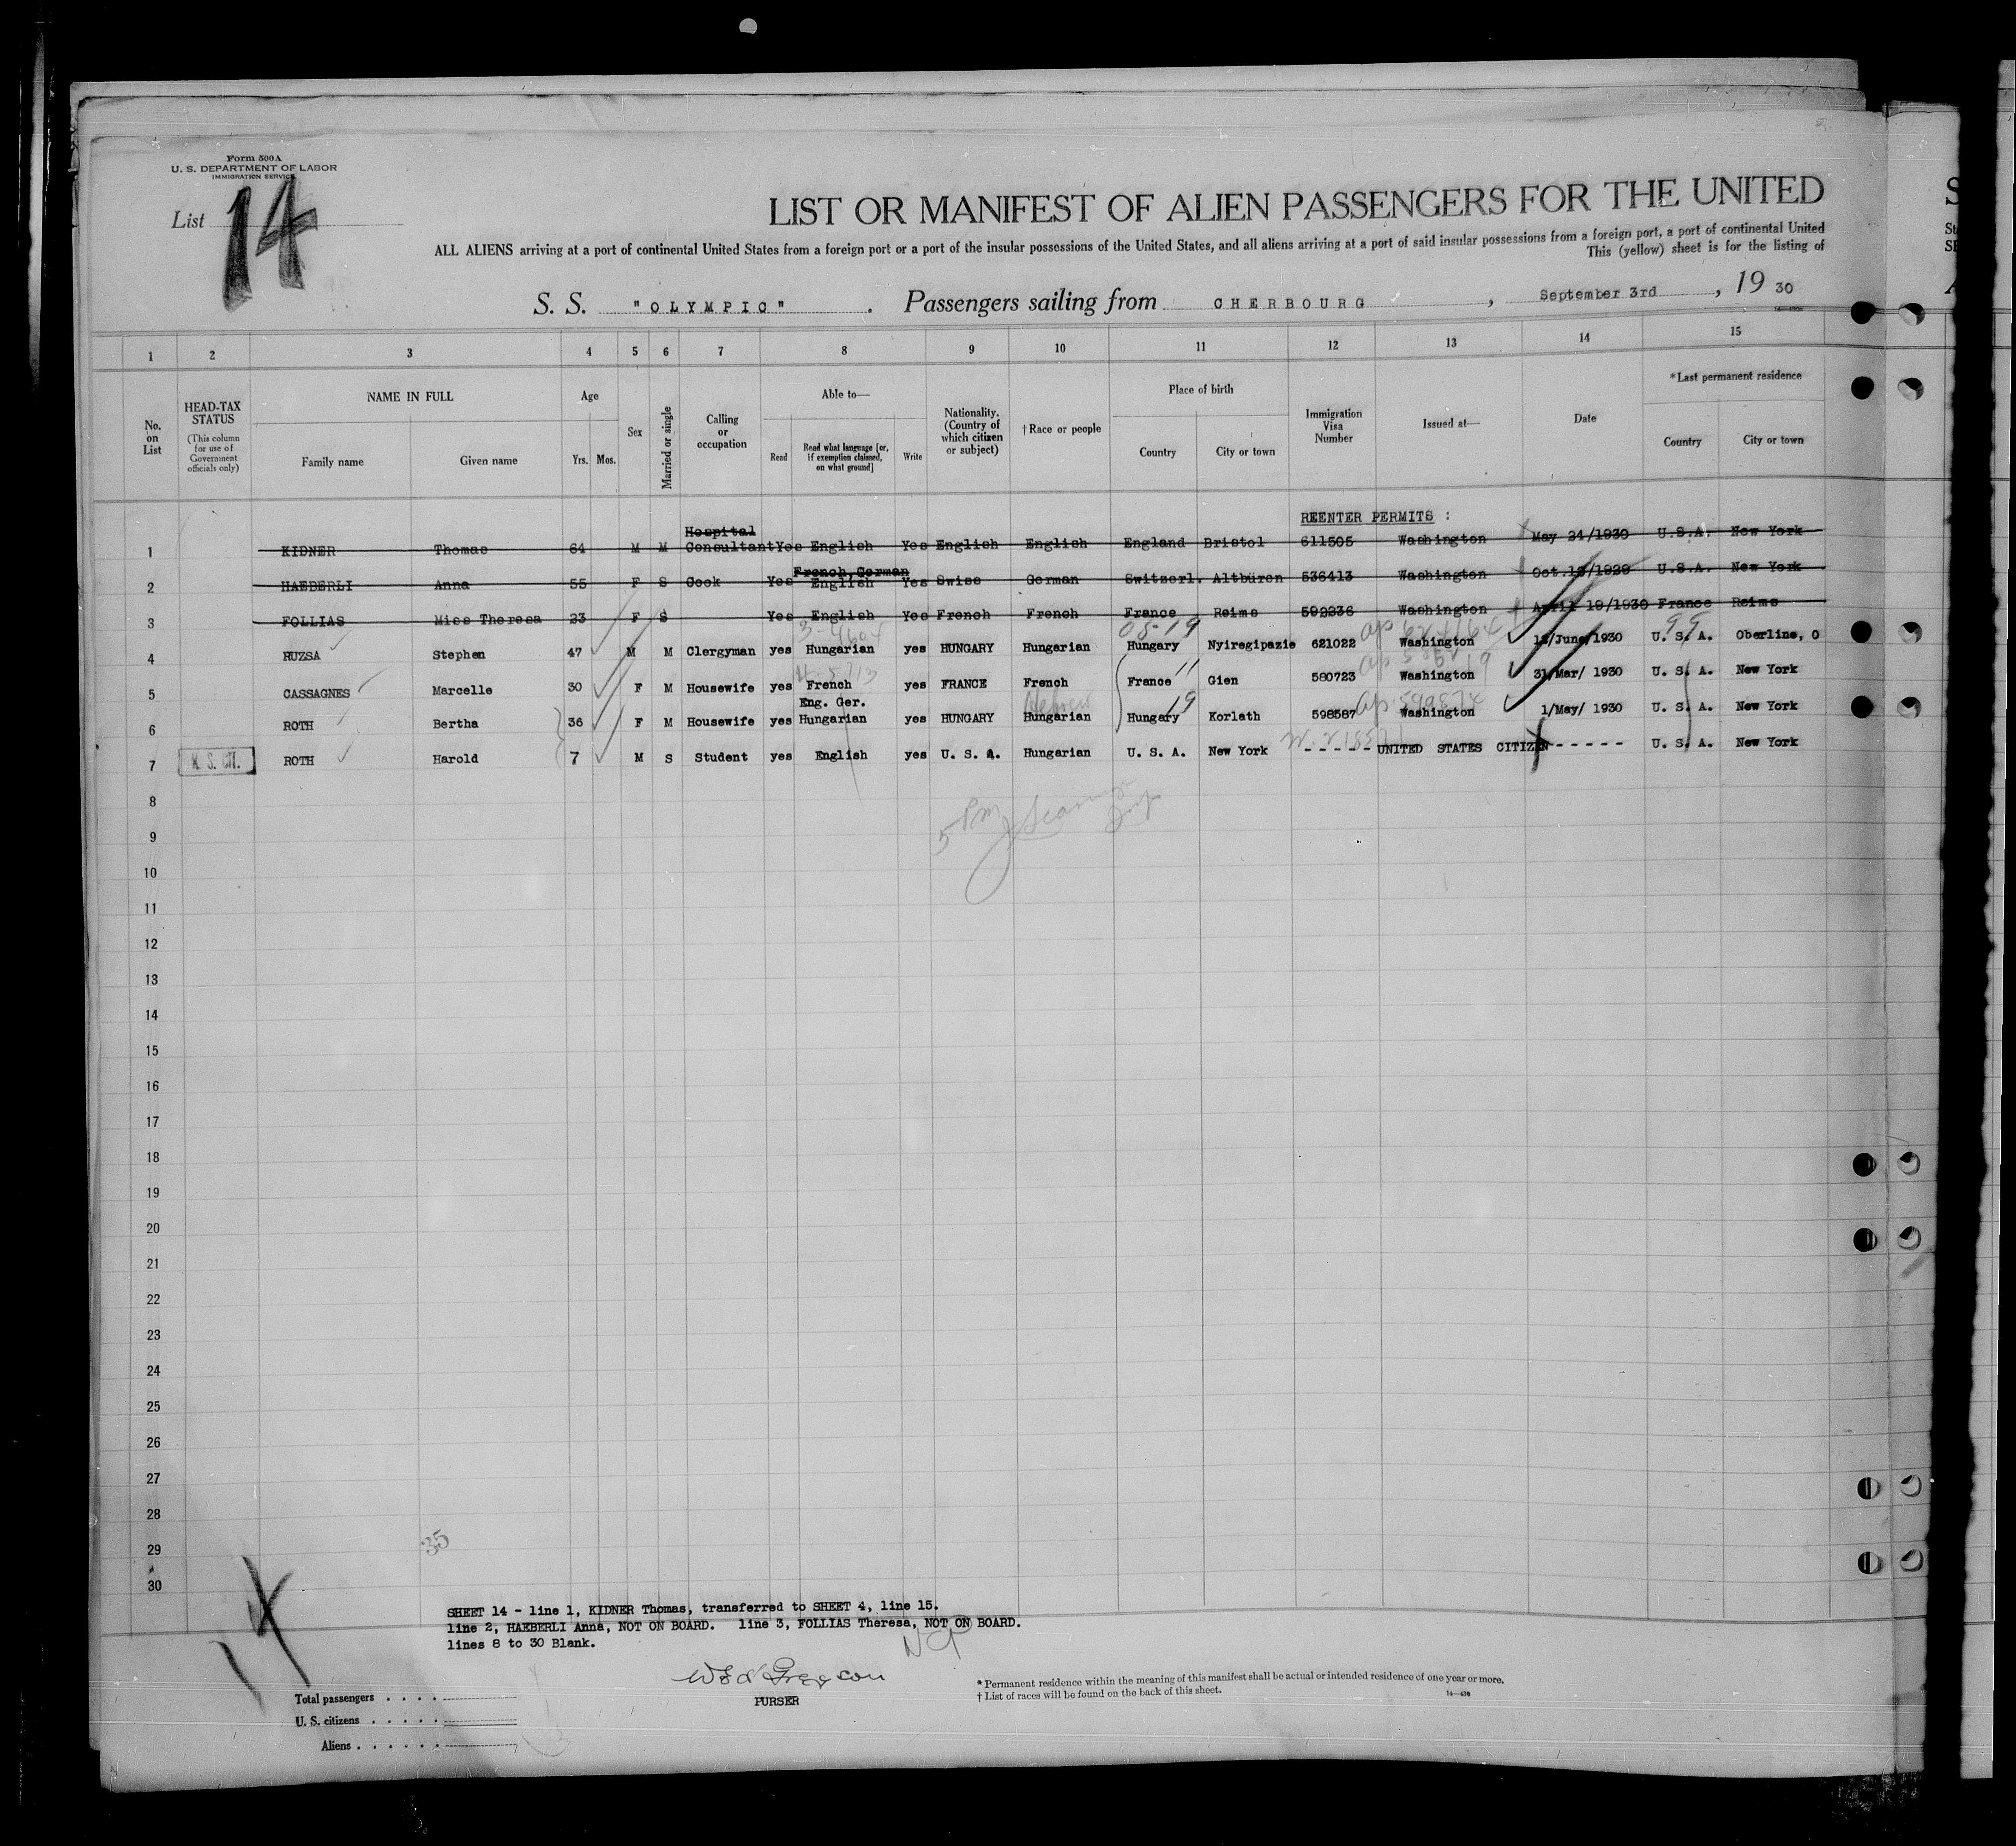 Form 500A
U. S. DEPARTMENT OF LABOR
IMMIGRATION SERVICE
List 14
LIST OR MANIFEST OF ALIEN PASSENGERS FOR THE UNITED
ALL ALIENS arriving at a port of continental United States from a foreign port or a port of the insular possessions of the United States, and all aliens arriving at a port of said insular possessions from a foreign port, a port of continental United
This (yellow) sheet is for the listing of
S. S. "OLYMPIC" . Passengers sailing from CHERBOURG , September 3rd , 19 30
1 2 3 4 5 6 7 8 9 10 11 12 13 14 15
No. on List
HEAD-TAX STATUS (This column for use of Government officials only)
NAME IN FULL
Family name
Given name
Age
Yrs. Mos.
Sex
Married or single
Calling or occupation
Able to—
Read
Read what language [or, if exemption claimed, on what ground]
Write
Nationality. (Country of which citizen or subject)
†Race or people
Place of birth
Country
City or town
Immigration Visa Number
Issued at—
Date
*Last permanent residence
Country
City or town
REENTER PERMITS :
1 KIDNER Thomas 64 M M Hospital Consultant Yes English Yes English English England Bristol 611505 Washington May 24/1930 U.S.A. New York
2 HAEBERLI Anna 55 F S Cook Yes French German English Yes Swiss German Switzerl. Altbüren 536413 Washington Oct. /1929 U.S.A. New York
3 FOLLIAS Miss Theresa 23 F S Yes English Yes French French France Reims 592236 Washington April 19/1930 France Reims
4 RUZSA Stephen 47 M M Clergyman yes Hungarian yes HUNGARY Hungarian Hungary Nyiregipazie 621022 Washington /June/1930 U. S. A. Oberline, O
5 CASSAGNES Marcelle 30 F M Housewife yes French yes FRANCE French France Gien 580723 Washington 31/Mar/ 1930 U. S. A. New York
6 ROTH Bertha 36 F M Housewife yes Eng. Ger. Hungarian yes HUNGARY Hungarian Hebrew Hungary Korlath 598587 Washington 1/May/ 1930 U. S. A. New York
7 U. S. CIT. ROTH Harold 7 M S Student yes English yes U. S. A. Hungarian U. S. A. New York - - - - - UNITED STATES CITIZEN - - - - - U. S. A. New York
8
9
10
11
12
13
14
15
16
17
18
19
20
21
22
23
24
25
26
27
28
29
30
35
14
SHEET 14 - line 1, KIDNER Thomas, transferred to SHEET 4, line 15.
line 2, HAEBERLI Anna, NOT ON BOARD. line 3, FOLLIAS Theresa, NOT ON BOARD.
lines 8 to 30 Blank.
PURSER
Total passengers . . . .
U. S. citizens . . . . .
Aliens . . . . . .
* Permanent residence within the meaning of this manifest shall be actual or intended residence of one year or more.
† List of races will be found on the back of this sheet.